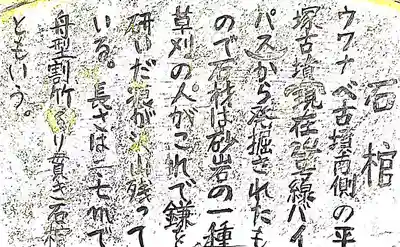 石棺
ウワナベ古墳南側の平
塚古墳現在号線バイ
パスから発掘されたも
ので石材は砂岩の一種
草刈の人がこれで鎌を
研いだ痕が沢山残って
いる。長さは二七で
舟型割竹くり貫き石棺
ともいう。